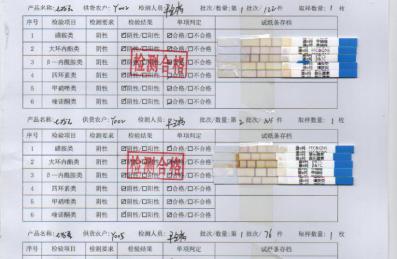 产品名称: 供货农户: Y002 检测人员: 批次/数量: 第 批次/122件 取样数量: 1 枚
序号 检验项目 检测要求 检验结果 单项判定 试纸条存档
1 磺胺类 阴性 ☑阴性/□阳性 ☑合格/□不合格
2 大环内酯类 阴性 ☑阴性/□阳性 ☑合格/□不合格
3 β—内酰胺类 阴性 ☑阴性/□阳性 ☑合格/□不合格
4 四环素类 阴性 ☑阴性/□阳性 ☑合格/□不合格
5 甲硝唑类 阴性 ☑阴性/□阳性 ☑合格/□不合格
6 喹诺酮类 阴性 ☑阴性/□阳性 ☑合格/□不合格
检测合格
产品名称: 供货农户: Y002 检测人员: 批次/数量: 第 批次/ 件 取样数量: 1 枚
序号 检验项目 检测要求 检验结果 单项判定 试纸条存档
1 磺胺类 阴性 ☑阴性/□阳性 ☑合格/□不合格
2 大环内酯类 阴性 ☑阴性/□阳性 ☑合格/□不合格
3 β—内酰胺类 阴性 ☑阴性/□阳性 ☑合格/□不合格
4 四环素类 阴性 ☑阴性/□阳性 ☑合格/□不合格
5 甲硝唑类 阴性 ☑阴性/□阳性 ☑合格/□不合格
6 喹诺酮类 阴性 ☑阴性/□阳性 ☑合格/□不合格
检测合格
产品名称: 供货农户: Y005 检测人员: 批次/数量: 第 1 批次/76 件 取样数量: 1 枚
序号 检验项目 检测要求 检验结果 单项判定 试纸条存档